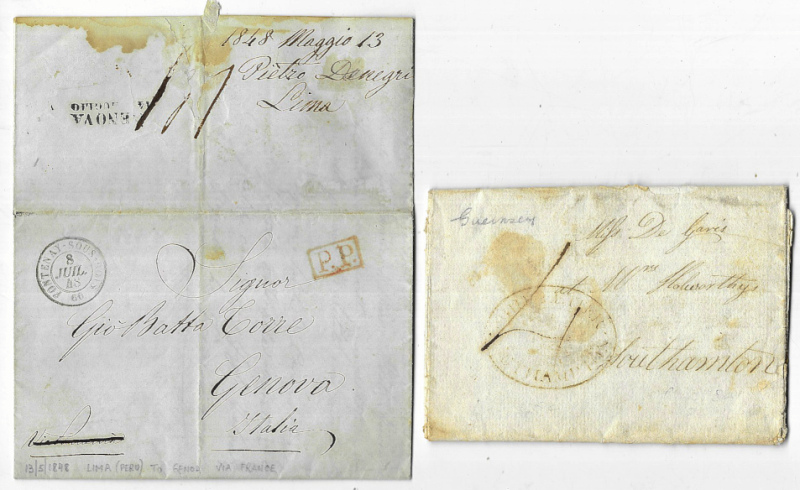 1848 Maggio 13
Pietro Denegri
Lima
GENOVA
LUGLIO
FONTENAY-SOUS-BOIS
8
JUIL.
48
(60)
P.P.
Signor
Gio Batta Torre
Genova
Italia
13/5/1848 LIMA (PERU) TO GENOA VIA FRANCE
Guernsey
De Garis
at Mme
Southamton